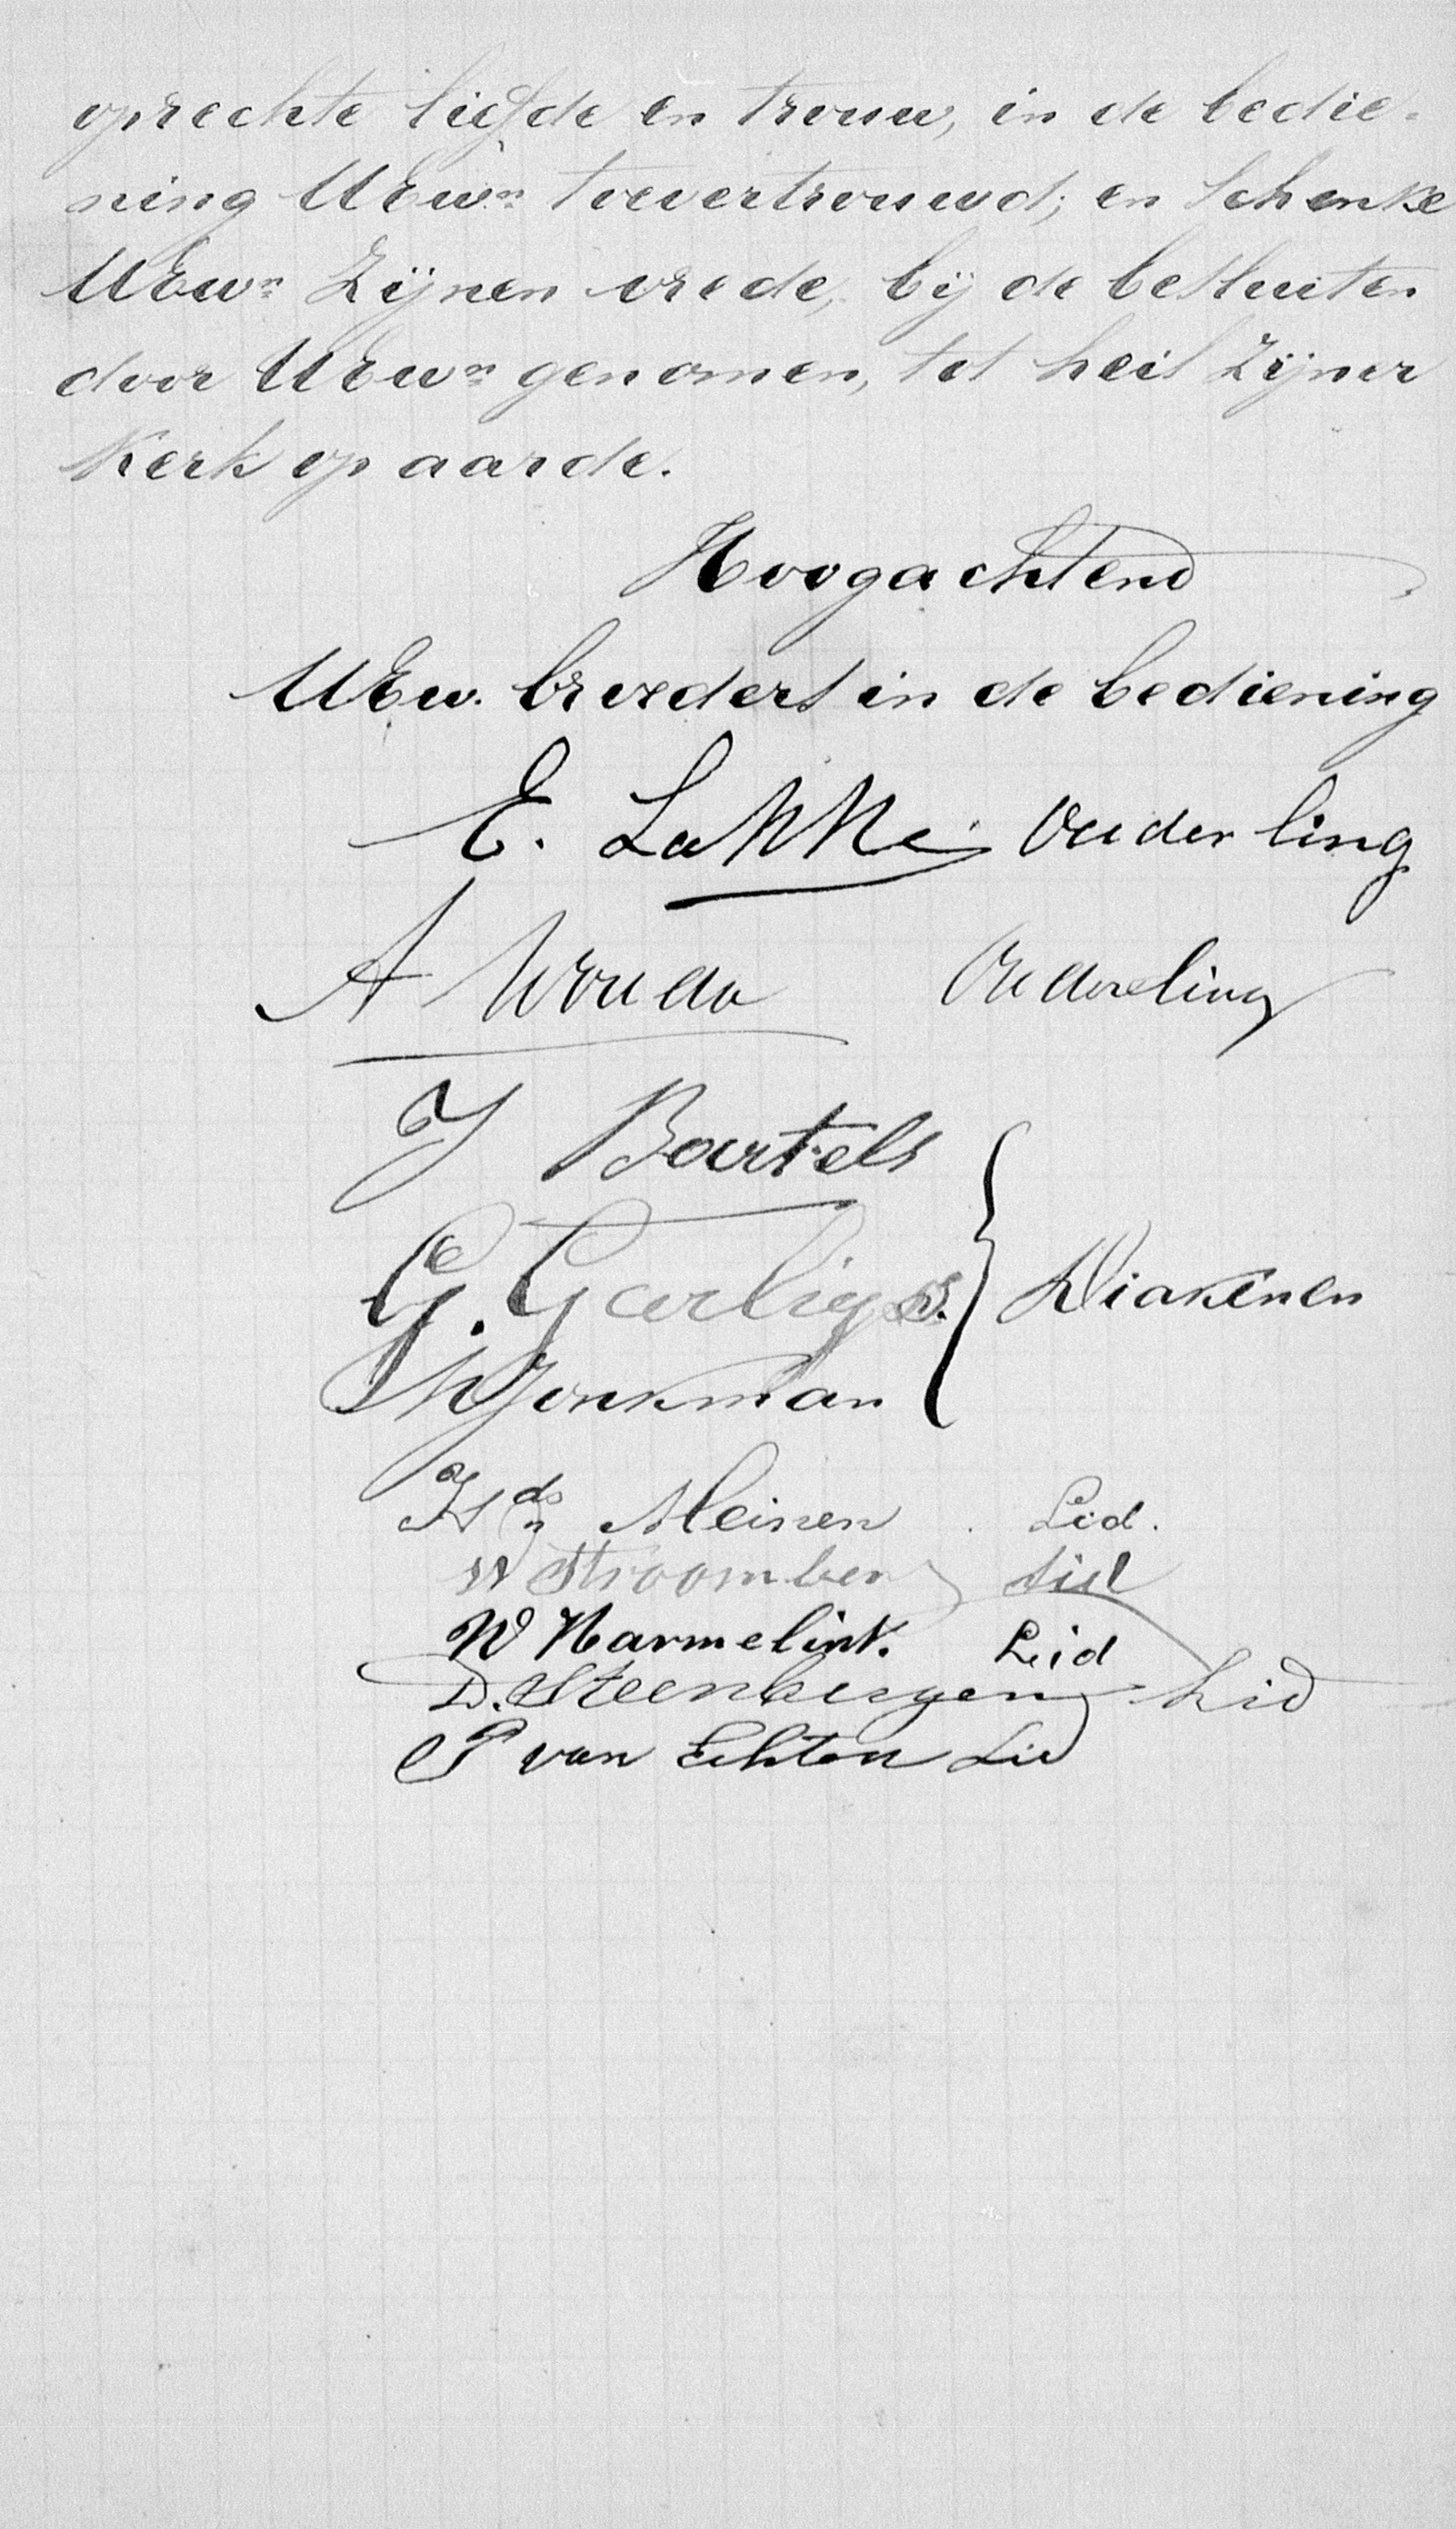 oprechte liefde en trouw, in de bedie-
ning UEwn toevertrouwd; en schenke
UEwn Zijnen vrede, bij de besluiten
door UEwn genomen, tot heil Zijner
Kerk op aarde.
Hoogachtend
UEw. broeders in de bediening
E. Ouderling
A Wouda Ouderling
J Bartels
G. Gerligs. Diakenen
Jonkman
Meinen Lid.
W Stroomberg Lid
W Harmelink. Lid
D. Steenbergen Lid
P van Echten Lid